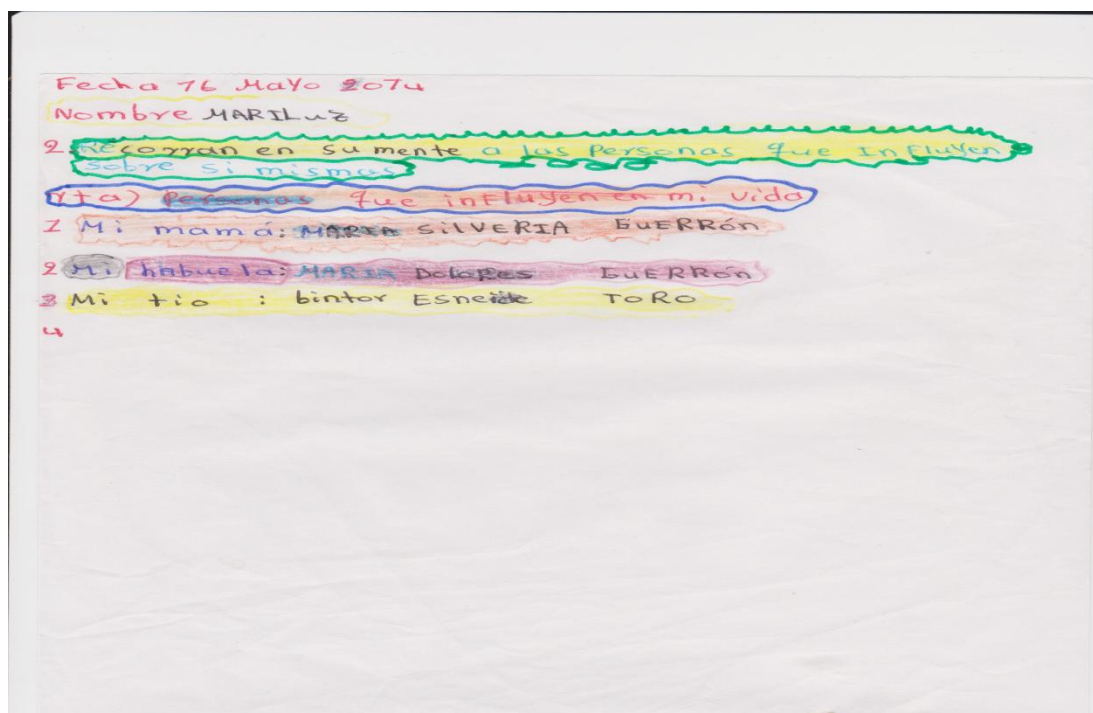 Fecha 16 Mayo 2014
Nombre MARILUZ
2 Recorran en su mente a las Personas que Influyen
sobre si mismas
rta) Personas que influyen en mi vida
1 Mi mamá: MARIA SILVERIA GUERRón
2 Mi habuela: MARIA Dolores GUERRón
3 Mi tio : bintor Esneide TORO
4